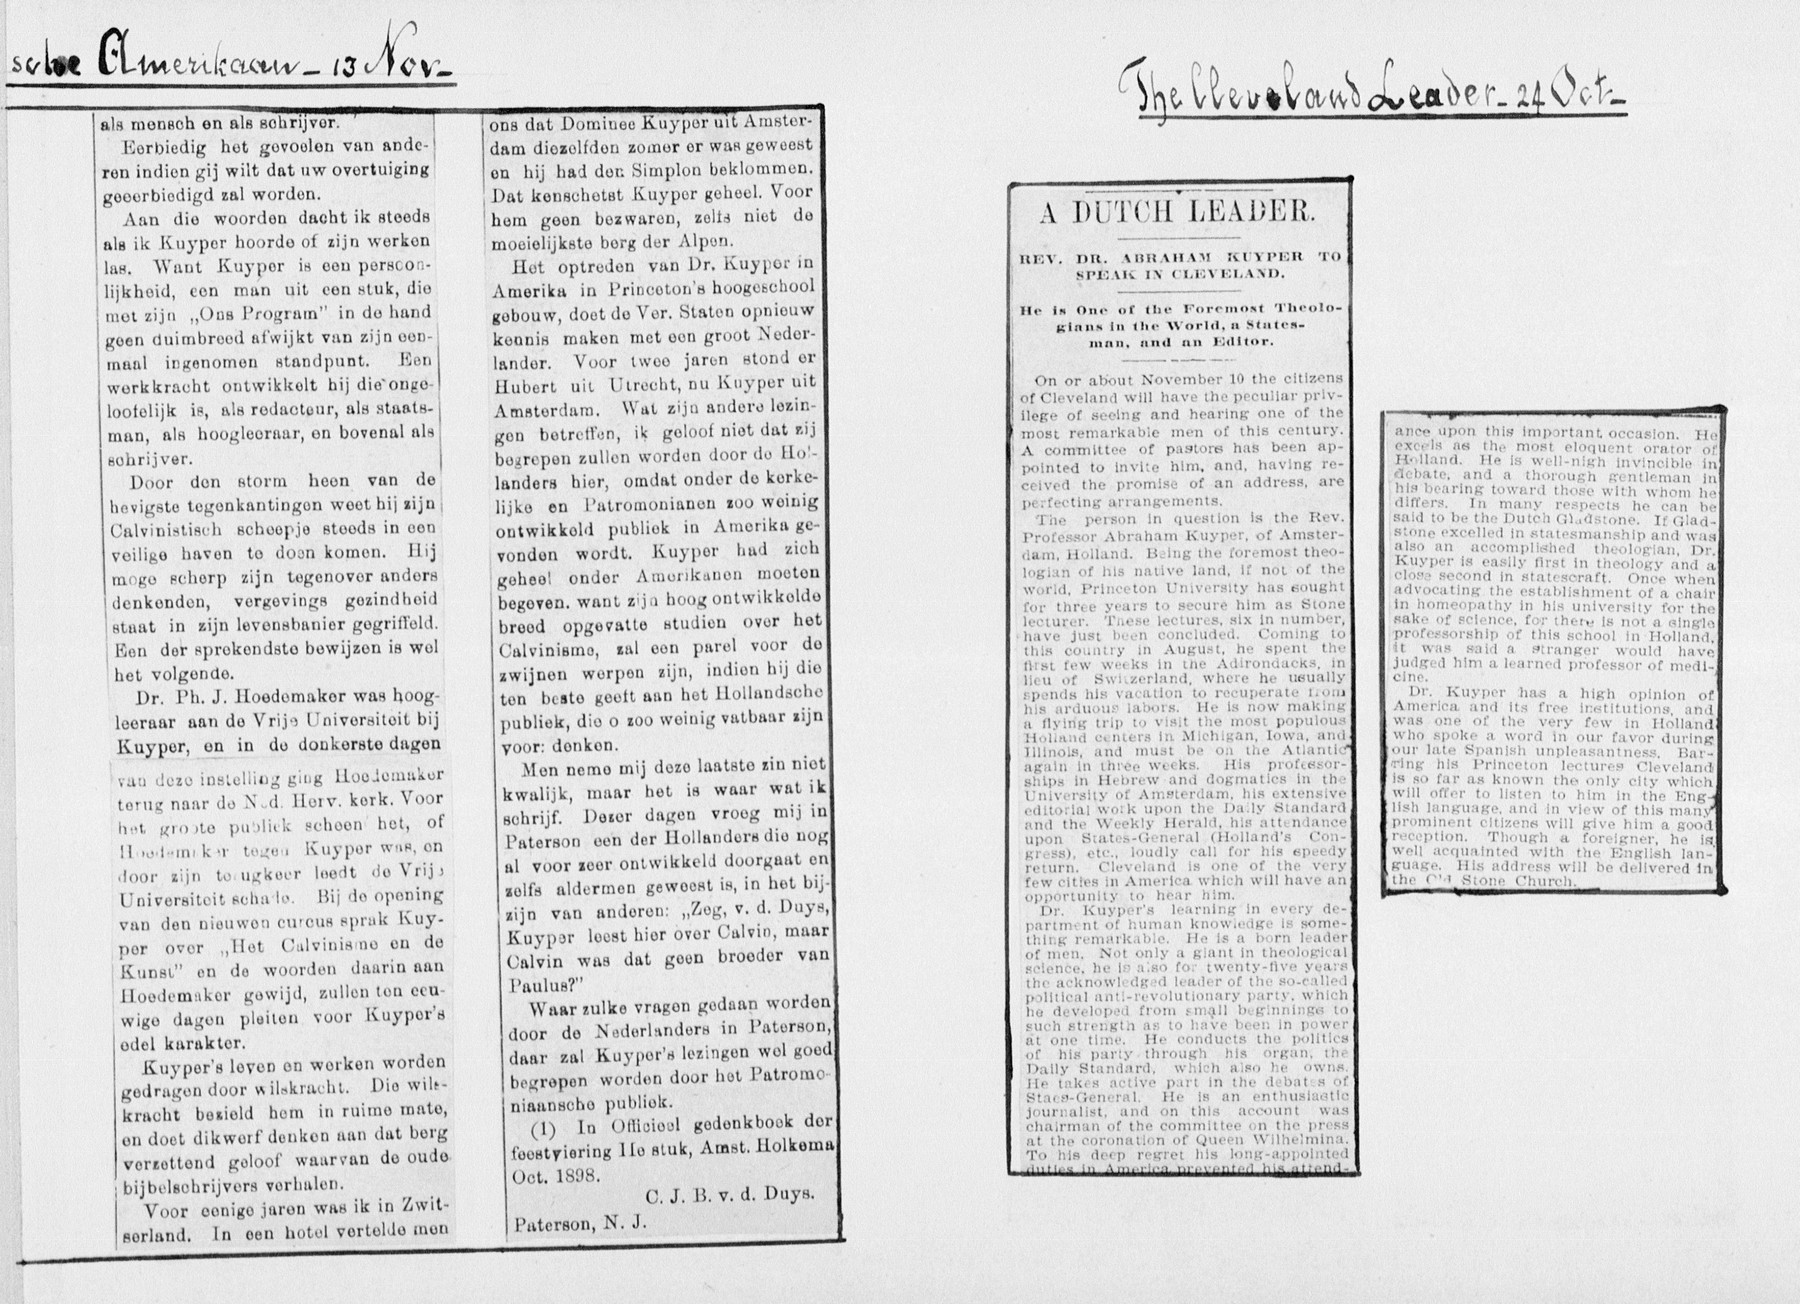 sche Amerikaan - 13 Nov -
als mensch en als schrijver.
Eerbiedig het gevoelen van ande-
ren indien gij wilt dat uw overtuiging
geëerbiedigd zal worden.
Aan die woorden dacht ik steeds
als ik Kuyper hoorde of zijn werken
las. Want Kuyper is een persoon-
lijkheid, een man uit een stuk, die
met zijn „Ons Program" in de hand
geen duimbreed afwijkt van zijn een-
maal ingenomen standpunt. Een
werkkracht ontwikkelt hij die onge-
loofelijk is, als redacteur, als staats-
man, als hoogleeraar, en bovenal als
schrijver.
Door den storm heen van de
hevigste tegenkantingen weet hij zijn
Calvinistisch scheepje steeds in een
veilige haven te doen komen. Hij
moge scherp zijn tegenover anders
denkenden, vergevings gezindheid
staat in zijn levensbanier gegriffeld.
Een der sprekendste bewijzen is wel
het volgende.
Dr. Ph. J. Hoedemaker was hoog-
leeraar aan de Vrije Universiteit bij
Kuyper, en in de donkerste dagen
van deze instelling ging Hoedemaker
terug naar de Ned. Herv. kerk. Voor
het groote publiek scheen het, of
Hoedemaker tegen Kuyper was, en
door zijn terugkeer leedt de Vrije
Universiteit schade. Bij de opening
van den nieuwen cursus sprak Kuy-
per over „Het Calvinisme en de
Kunst" en de woorden daarin aan
Hoedemaker gewijd, zullen ten eeu-
wige dagen pleiten voor Kuyper's
edel karakter.
Kuyper's leven en werken worden
gedragen door wilskracht. Die wils-
kracht bezield hem in ruime mate,
en doet dikwerf denken aan dat berg
verzettend geloof waarvan de oude
bijbelschrijvers verhalen.
Voor eenige jaren was ik in Zwit-
serland. In een hotel vertelde men
ons dat Dominee Kuyper uit Amster-
dam diezelfden zomer er was geweest
en hij had den Simplon beklommen.
Dat kenschetst Kuyper geheel. Voor
hem geen bezwaren, zelfs niet de
moeielijkste berg der Alpen.
Het optreden van Dr. Kuyper in
Amerika in Princeton's hoogeschool
gebouw, doet de Ver. Staten opnieuw
kennis maken met een groot Neder-
lander. Voor twee jaren stond er
Hubert uit Utrecht, nu Kuyper uit
Amsterdam. Wat zijn andere lezin-
gen betreffen, ik geloof niet dat zij
begrepen zullen worden door de Hol-
landers hier, omdat onder de kerke-
lijke en Patromonianen zoo weinig
ontwikkeld publiek in Amerika ge-
vonden wordt. Kuyper had zich
geheel onder Amerikanen moeten
begeven. want zijn hoog ontwikkelde
breed opgevatte studien over het
Calvinisme, zal een parel voor de
zwijnen werpen zijn, indien hij die
ten beste geeft aan het Hollandsche
publiek, die o zoo weinig vatbaar zijn
voor: denken.
Men neme mij deze laatste zin niet
kwalijk, maar het is waar wat ik
schrijf. Dezer dagen vroeg mij in
Paterson een der Hollanders die nog
al voor zeer ontwikkeld doorgaat en
zelfs aldermen geweest is, in het bij-
zijn van anderen: „Zeg, v. d. Duys,
Kuyper leest hier over Calvin, maar
Calvin was dat geen broeder van
Paulus?"
Waar zulke vragen gedaan worden
door de Nederlanders in Paterson,
daar zal Kuyper's lezingen wel goed
begrepen worden door het Patromo-
niaansche publiek.
(1) In Officieel gedenkboek der
feestviering 11e stuk, Amst. Holkema
Oct. 1898.
C. J. B. v. d. Duys.
Paterson, N. J.
The Cleveland Leader - 24 Oct -
A DUTCH LEADER.
REV. DR. ABRAHAM KUYPER TO
SPEAK IN CLEVELAND.
He is One of the Foremost Theolo-
gians in the World, a States-
man, and an Editor.
On or about November 10 the citizens
of Cleveland will have the peculiar priv-
ilege of seeing and hearing one of the
most remarkable men of this century.
A committee of pastors has been ap-
pointed to invite him, and, having re-
ceived the promise of an address, are
perfecting arrangements.
The person in question is the Rev.
Professor Abraham Kuyper, of Amster-
dam, Holland. Being the foremost theo-
logian of his native land, if not of the
world, Princeton University has sought
for three years to secure him as Stone
lecturer. These lectures, six in number,
have just been concluded. Coming to
this country in August, he spent the
first few weeks in the Adirondacks, in
lieu of Switzerland, where he usually
spends his vacation to recuperate from
his arduous labors. He is now making
a flying trip to visit the most populous
Holland centers in Michigan, Iowa, and
Illinois, and must be on the Atlantic
again in three weeks. His professor-
ships in Hebrew and dogmatics in the
University of Amsterdam, his extensive
editorial work upon the Daily Standard
and the Weekly Herald, his attendance
upon States-General (Holland's Con-
gress), etc., loudly call for his speedy
return. Cleveland is one of the very
few cities in America which will have an
opportunity to hear him.
Dr. Kuyper's learning in every de-
partment of human knowledge is some-
thing remarkable. He is a born leader
of men. Not only a giant in theological
science, he is also for twenty-five years
the acknowledged leader of the so-called
political anti-revolutionary party, which
he developed from small beginnings to
such strength as to have been in power
at one time. He conducts the politics
of his party through his organ, the
Daily Standard, which also he owns.
He takes active part in the debates of
Staes-General. He is an enthusiastic
journalist, and on this account was
chairman of the committee on the press
at the coronation of Queen Wilhelmina.
To his deep regret his long-appointed
duties in America prevented his attend-
ance upon this important occasion. He
excels as the most eloquent orator of
Holland. He is well-nigh invincible in
debate, and a thorough gentleman in
his bearing toward those with whom he
differs. In many respects he can be
said to be the Dutch Gladstone. If Glad-
stone excelled in statesmanship and was
also an accomplished theologian, Dr.
Kuyper is easily first in theology and a
close second in statescraft. Once when
advocating the establishment of a chair
in homeopathy in his university for the
sake of science, for there is not a single
professorship of this school in Holland,
it was said a stranger would have
judged him a learned professor of medi-
cine.
Dr. Kuyper has a high opinion of
America and its free institutions, and
was one of the very few in Holland
who spoke a word in our favor during
our late Spanish unpleasantness. Bar-
ring his Princeton lectures Cleveland
is so far as known the only city which
will offer to listen to him in the Eng-
lish language, and in view of this many
prominent citizens will give him a good
reception. Though a foreigner, he is
well acquainted with the English lan-
guage. His address will be delivered in
the Old Stone Church.